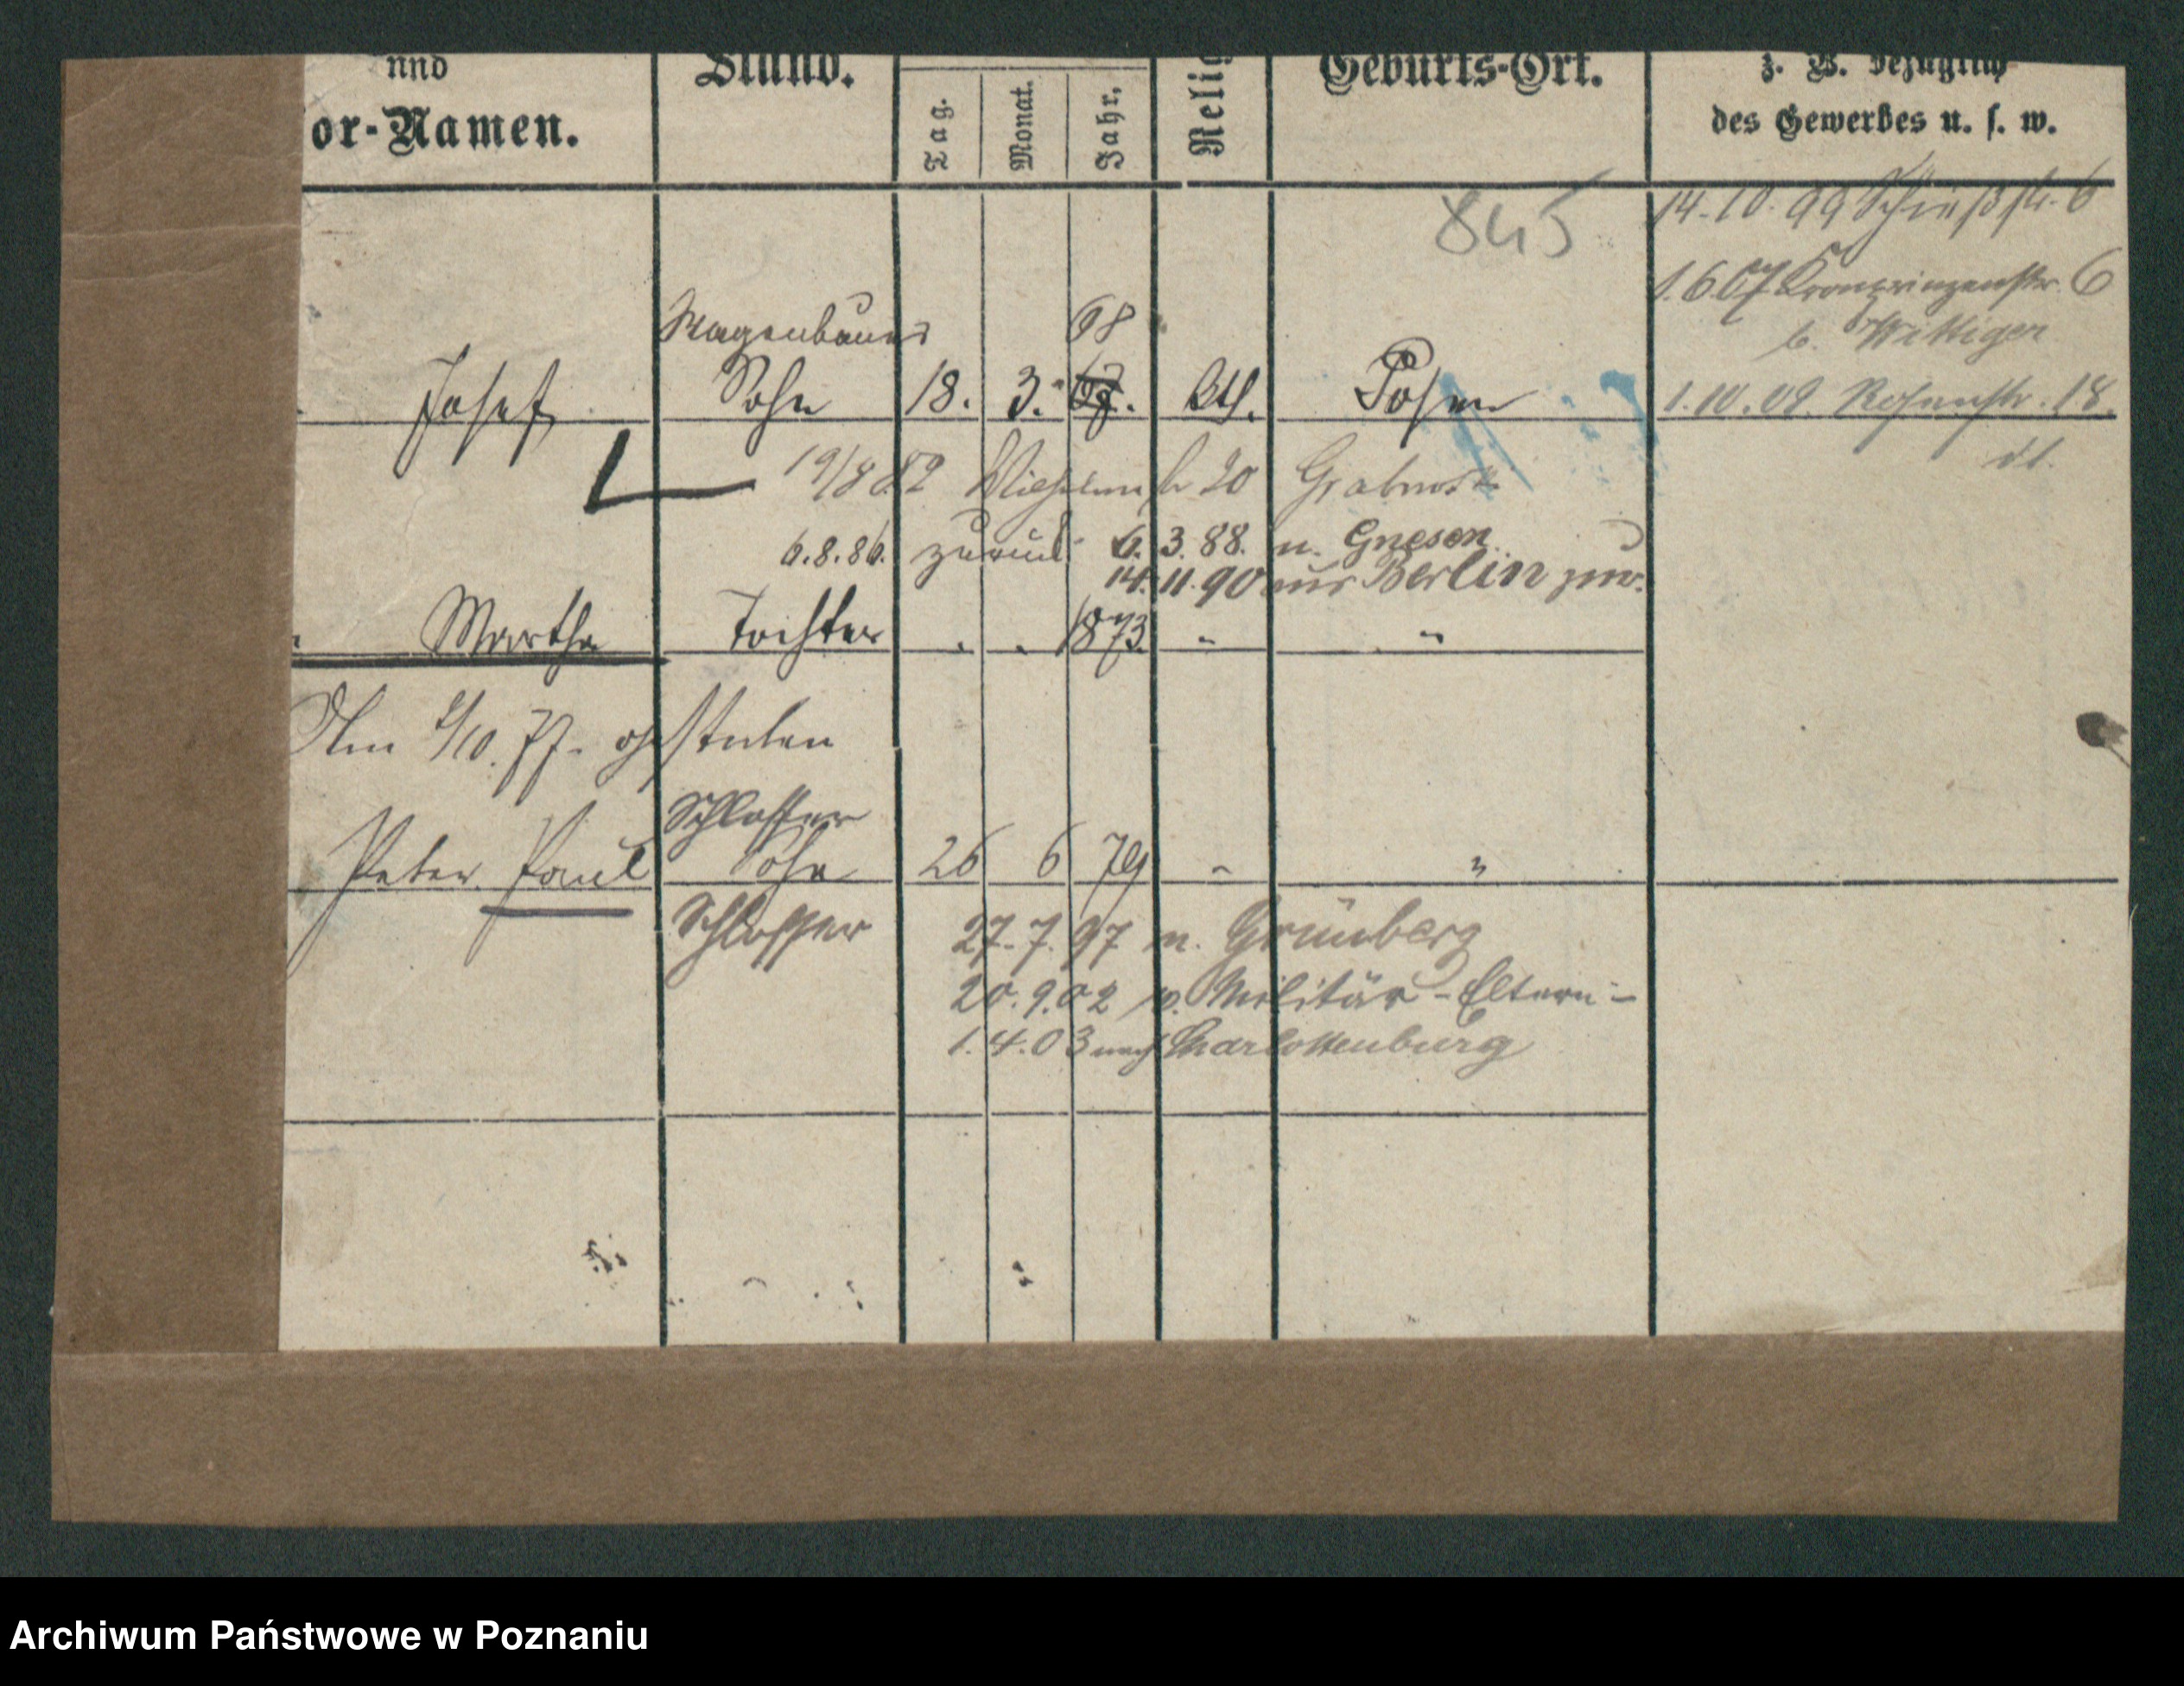 und
or-Namen.
Stand.
Tag.
Monat.
Jahr.
Relig
Geburts-Ort.
z. B. bezüglich
des Gewerbes u. s. w.
845
14.10.99 Schießstr. 6
1.6.07 Kronprinzenstr. 6
b. Wittiger
1.10.09. Rosenstr. 18.
Wagenbauer 68
Josef Sohn 18. 3. Kth. Posen
19/8 82 20
6.8.86. zurück 6. 3. 88. n. Gnesen
14. 11. 90 aus Berlin zur.
Martha Tochter 1873 " "
Am 2/10. 77. gestorben
Schlosser
Peter Paul Sohn 26 6 79 " "
Schlosser 27. 7. 97 n. Grünberg
20. 9. 02 v. Militär - Eltern -
1. 4. 03 nach Charlottenburg
Archiwum Państwowe w Poznaniu